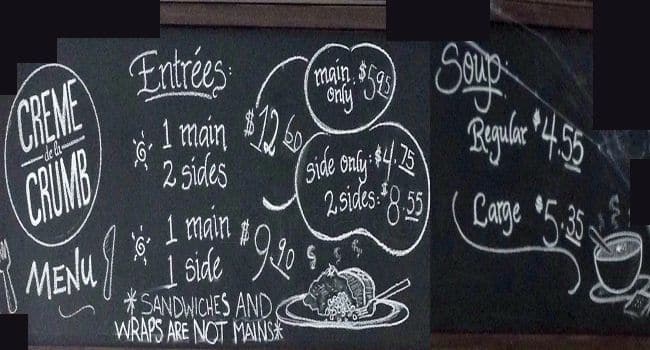 CREME
de la
CRUMB
MENU
Entrées:
1 main
2 sides
$12.60
1 main
1 side
$9.90
*SANDWICHES AND
WRAPS ARE NOT MAINS*
main
only: $5.95
side only: $4.75
2 sides: $8.55
Soup:
Regular $4.55
Large $5.35